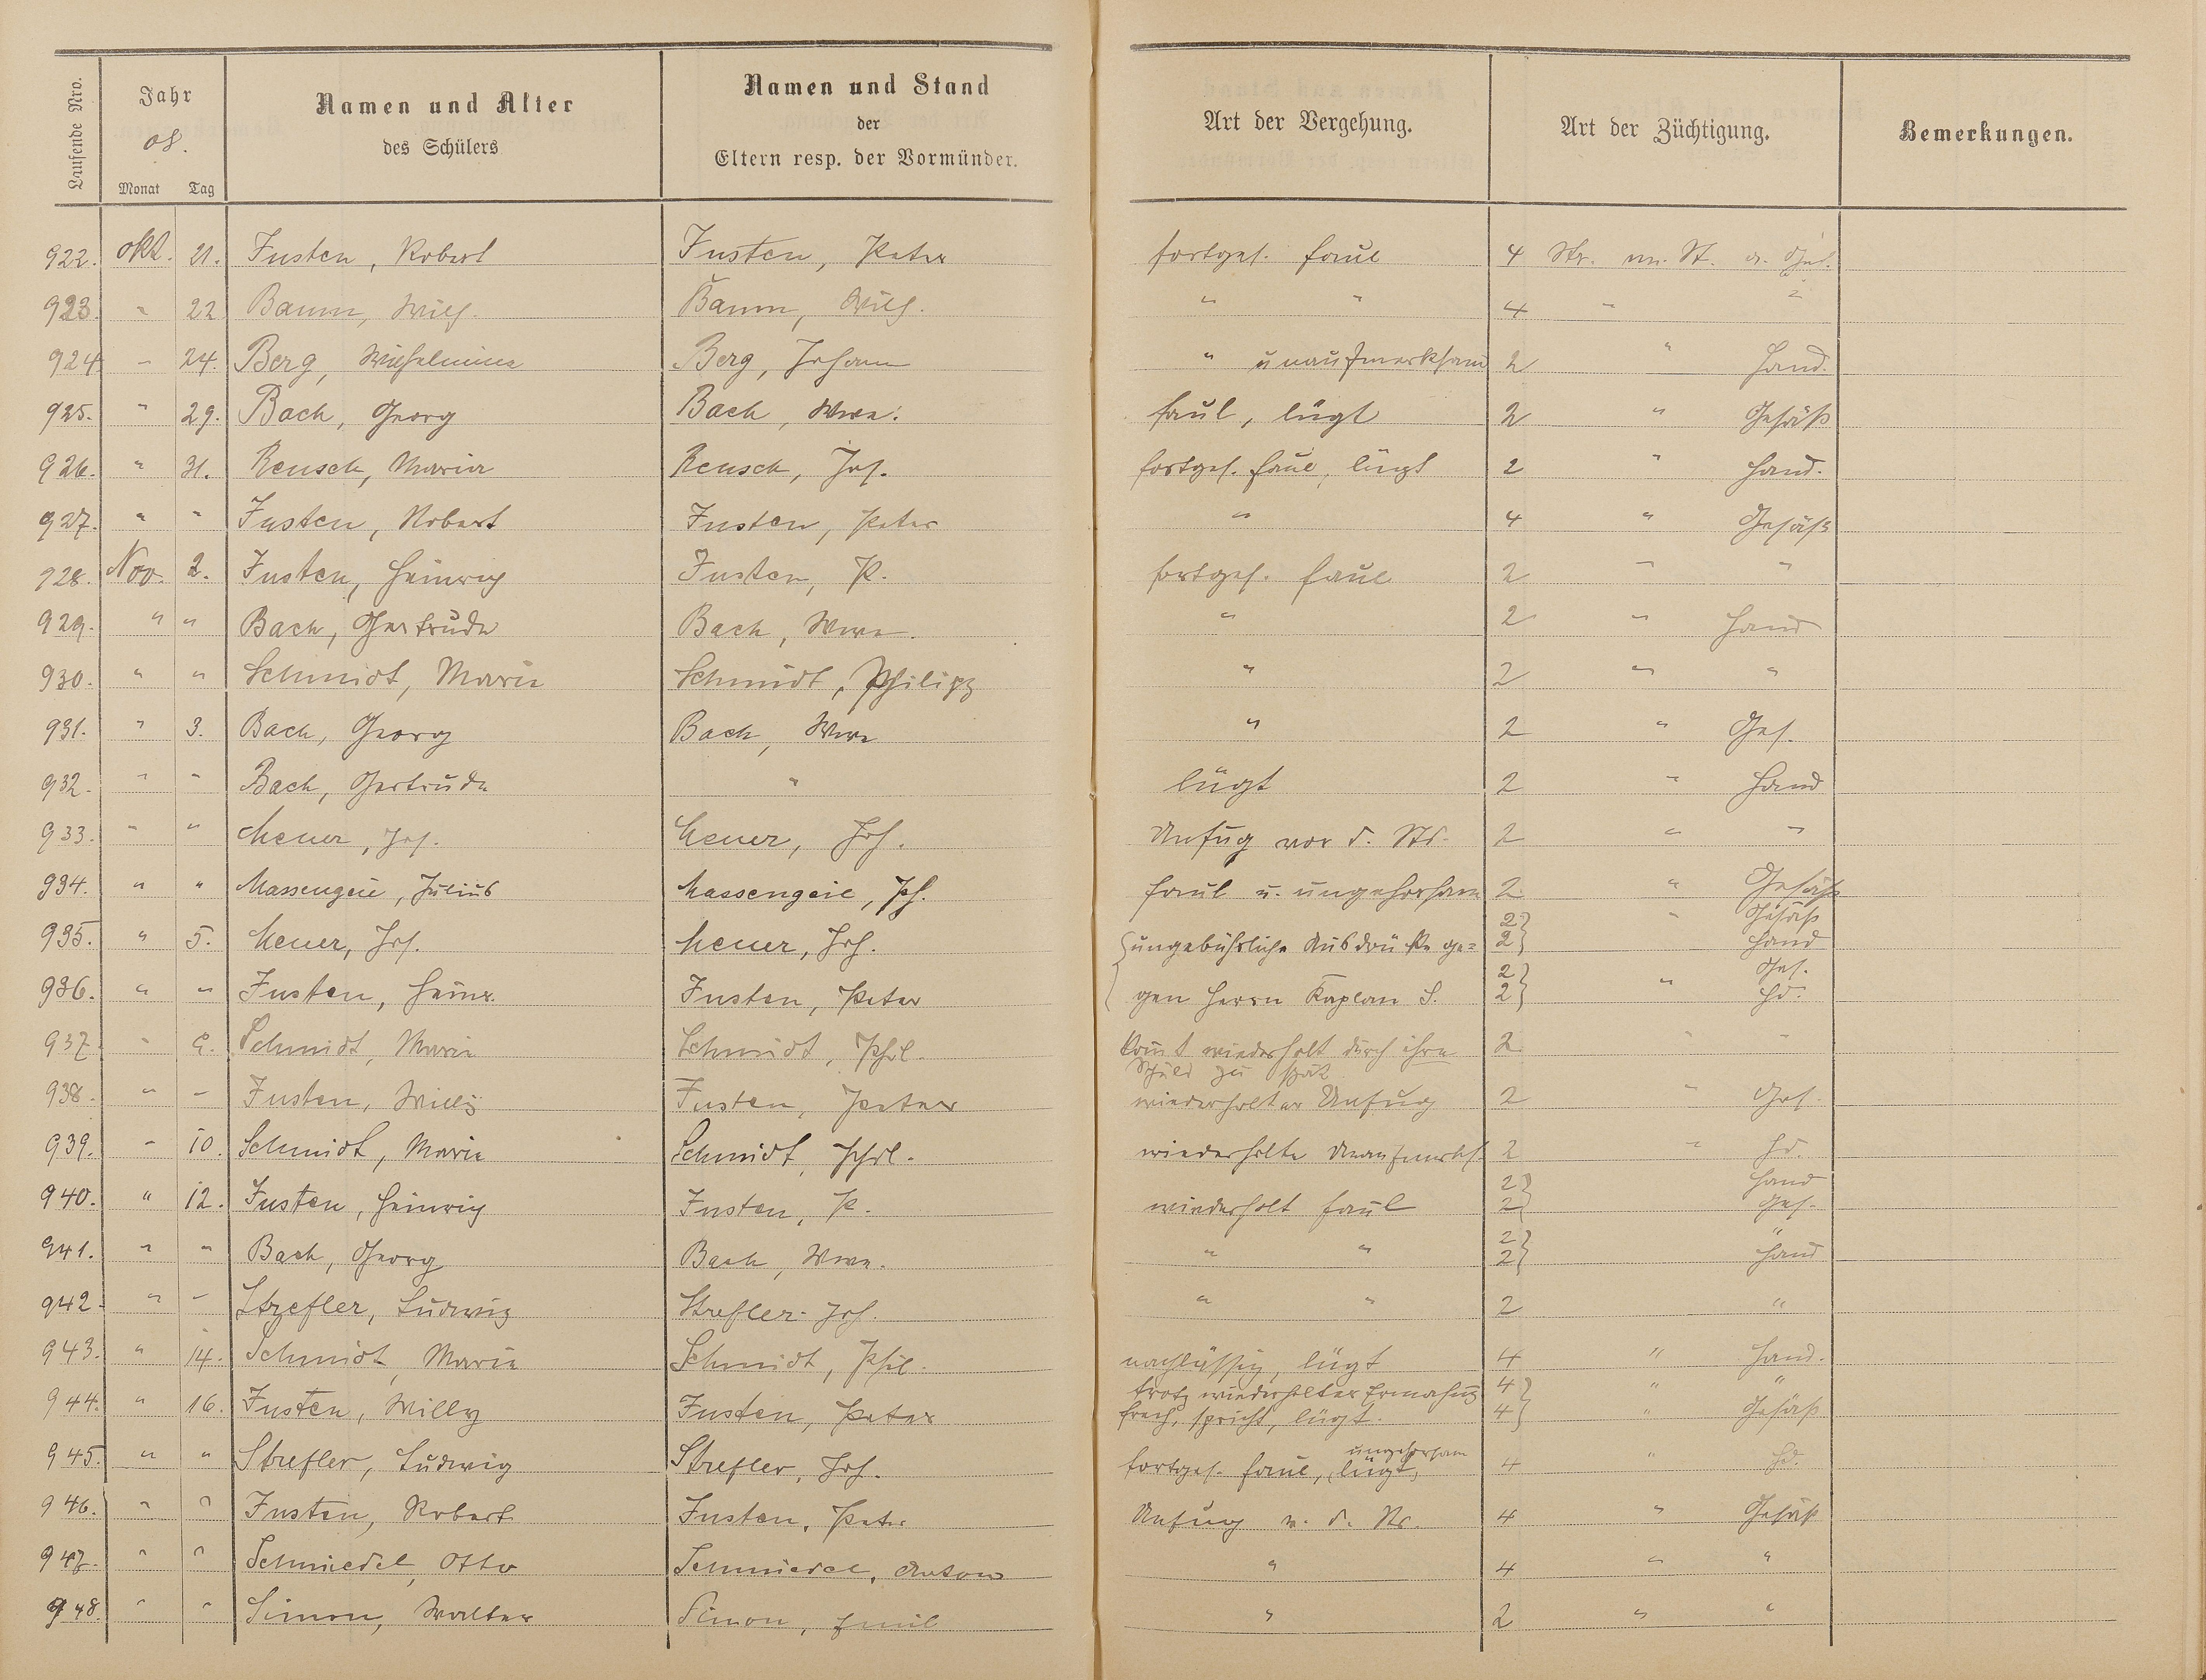 Laufende Nro.
Jahr
08.
Monat Tag
Namen und Alter
des Schülers
Namen und Stand
der
Eltern resp. der Vormünder.
Art der Vergehung.
Art der Züchtigung.
Bemerkungen.
922. Okt. 21. Fusten, Robert Fusten, Peter fortges. faul 4 Str. m. St. a. Ges.
923. " 22 Baum, Wilh. Baum, Wilh. " " 4 " "
924. " 24. Berg, Wilhelmina Berg, Johann " unaufmerksam 2 " Hand.
925. " 29. Bach, Georg Bach, Wwe. faul, lügt 2 " Gesäß
926. " 31. Reusch, Maria Reusch, Jos. fortges. faul, lügt 2 " Hand.
927. " " Fusten, Robert Fusten, Peter " 4 " Gesäß
928. Nov. 2. Fusten, Heinrich Fusten, P. fortges. faul 2 " "
929. " " Bach, Gertrude Bach, Wwe. " 2 " Hand
930. " " Schmidt, Maria Schmidt, Philipp " 2 " "
931. " 3. Bach, Georg Bach, Wwe " 2 " Ges.
932. " " Bach, Gertrude " lügt 2 " Hand
933. " " Meuer, Jos. Meuer, Jos. Unfug vor d. Std. 2 " "
934. " " Massengeil, Julius Massengeil, Ph. faul u. ungehorsam 2 " Gesäß
935. " 5. Meuer, Jos. Meuer, Jos. ungebührliche Ausdrücke ge= 2 2 " Gesäß Hand
936. " " Fusten, Heinr. Fusten, Peter gen Herrn Kaplan S. 2 2 " Ges. Hd.
937. " 9. Schmidt, Maria Schmidt, Phil. komt wiederholt durch ihre 2 " "
Schuld zu spät
938. " " Fusten, Willy Fusten, Peter wiederholter Unfug 2 " Ges.
939. " 10. Schmidt, Maria Schmidt, Phil. wiederholte Unaufmerks. 2 " Hd.
940. " 12. Fusten, Heinrich Fusten, P. wiederholt faul 2 2 Hand Ges.
941. " " Bach, Georg Bach, Wwe. " " 2 2 " Hand
942. " " Strefler, Ludwig Strefler Jos. " " 2 "
943. " 14. Schmidt, Maria Schmidt, Phil. nachlässig, lügt 4 " Hand.
944. " 16. Fusten, Willy Fusten, Peter trotz wiederholter Ermahnug 4 " "
frech, spricht, lügt. 4 " Gesäß
945. " " Strefler, Ludwig Strefler, Jos. fortges. faul, lügt, ungehorsam 4 " Hd.
946. " " Fusten, Robert Fusten, Peter Unfug v. d. Str. 4 " Gesäß
947. " " Schmiedel, Otto Schmiedel, Anton " 4 " "
948. " " Simon, Walter Simon, Emil " 2 " "